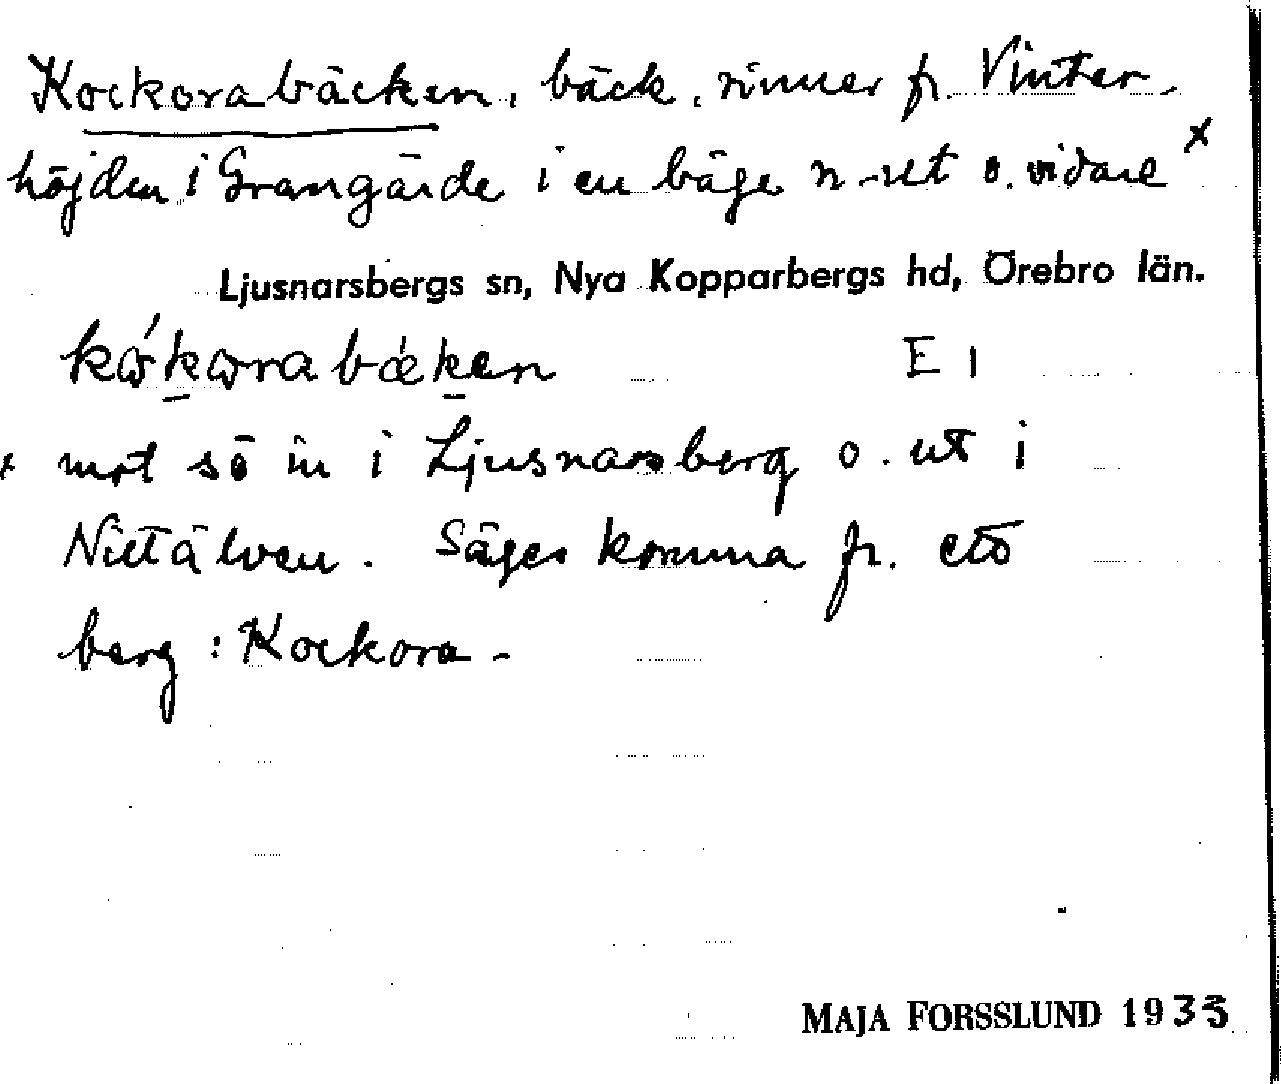 Kockorabäcken, bäck, rinner fr. Vinter-
höjden i Grangärde i en båge n-ut o. vidare x
Ljusnarsbergs sn, Nya Kopparbergs hd, Örebro län.
E 1
x mot sö in i Ljusnarsberg o. ut i
Nittälven. Säges komma fr. ett
berg: Kockora-
MAJA FORSSLUND 1935